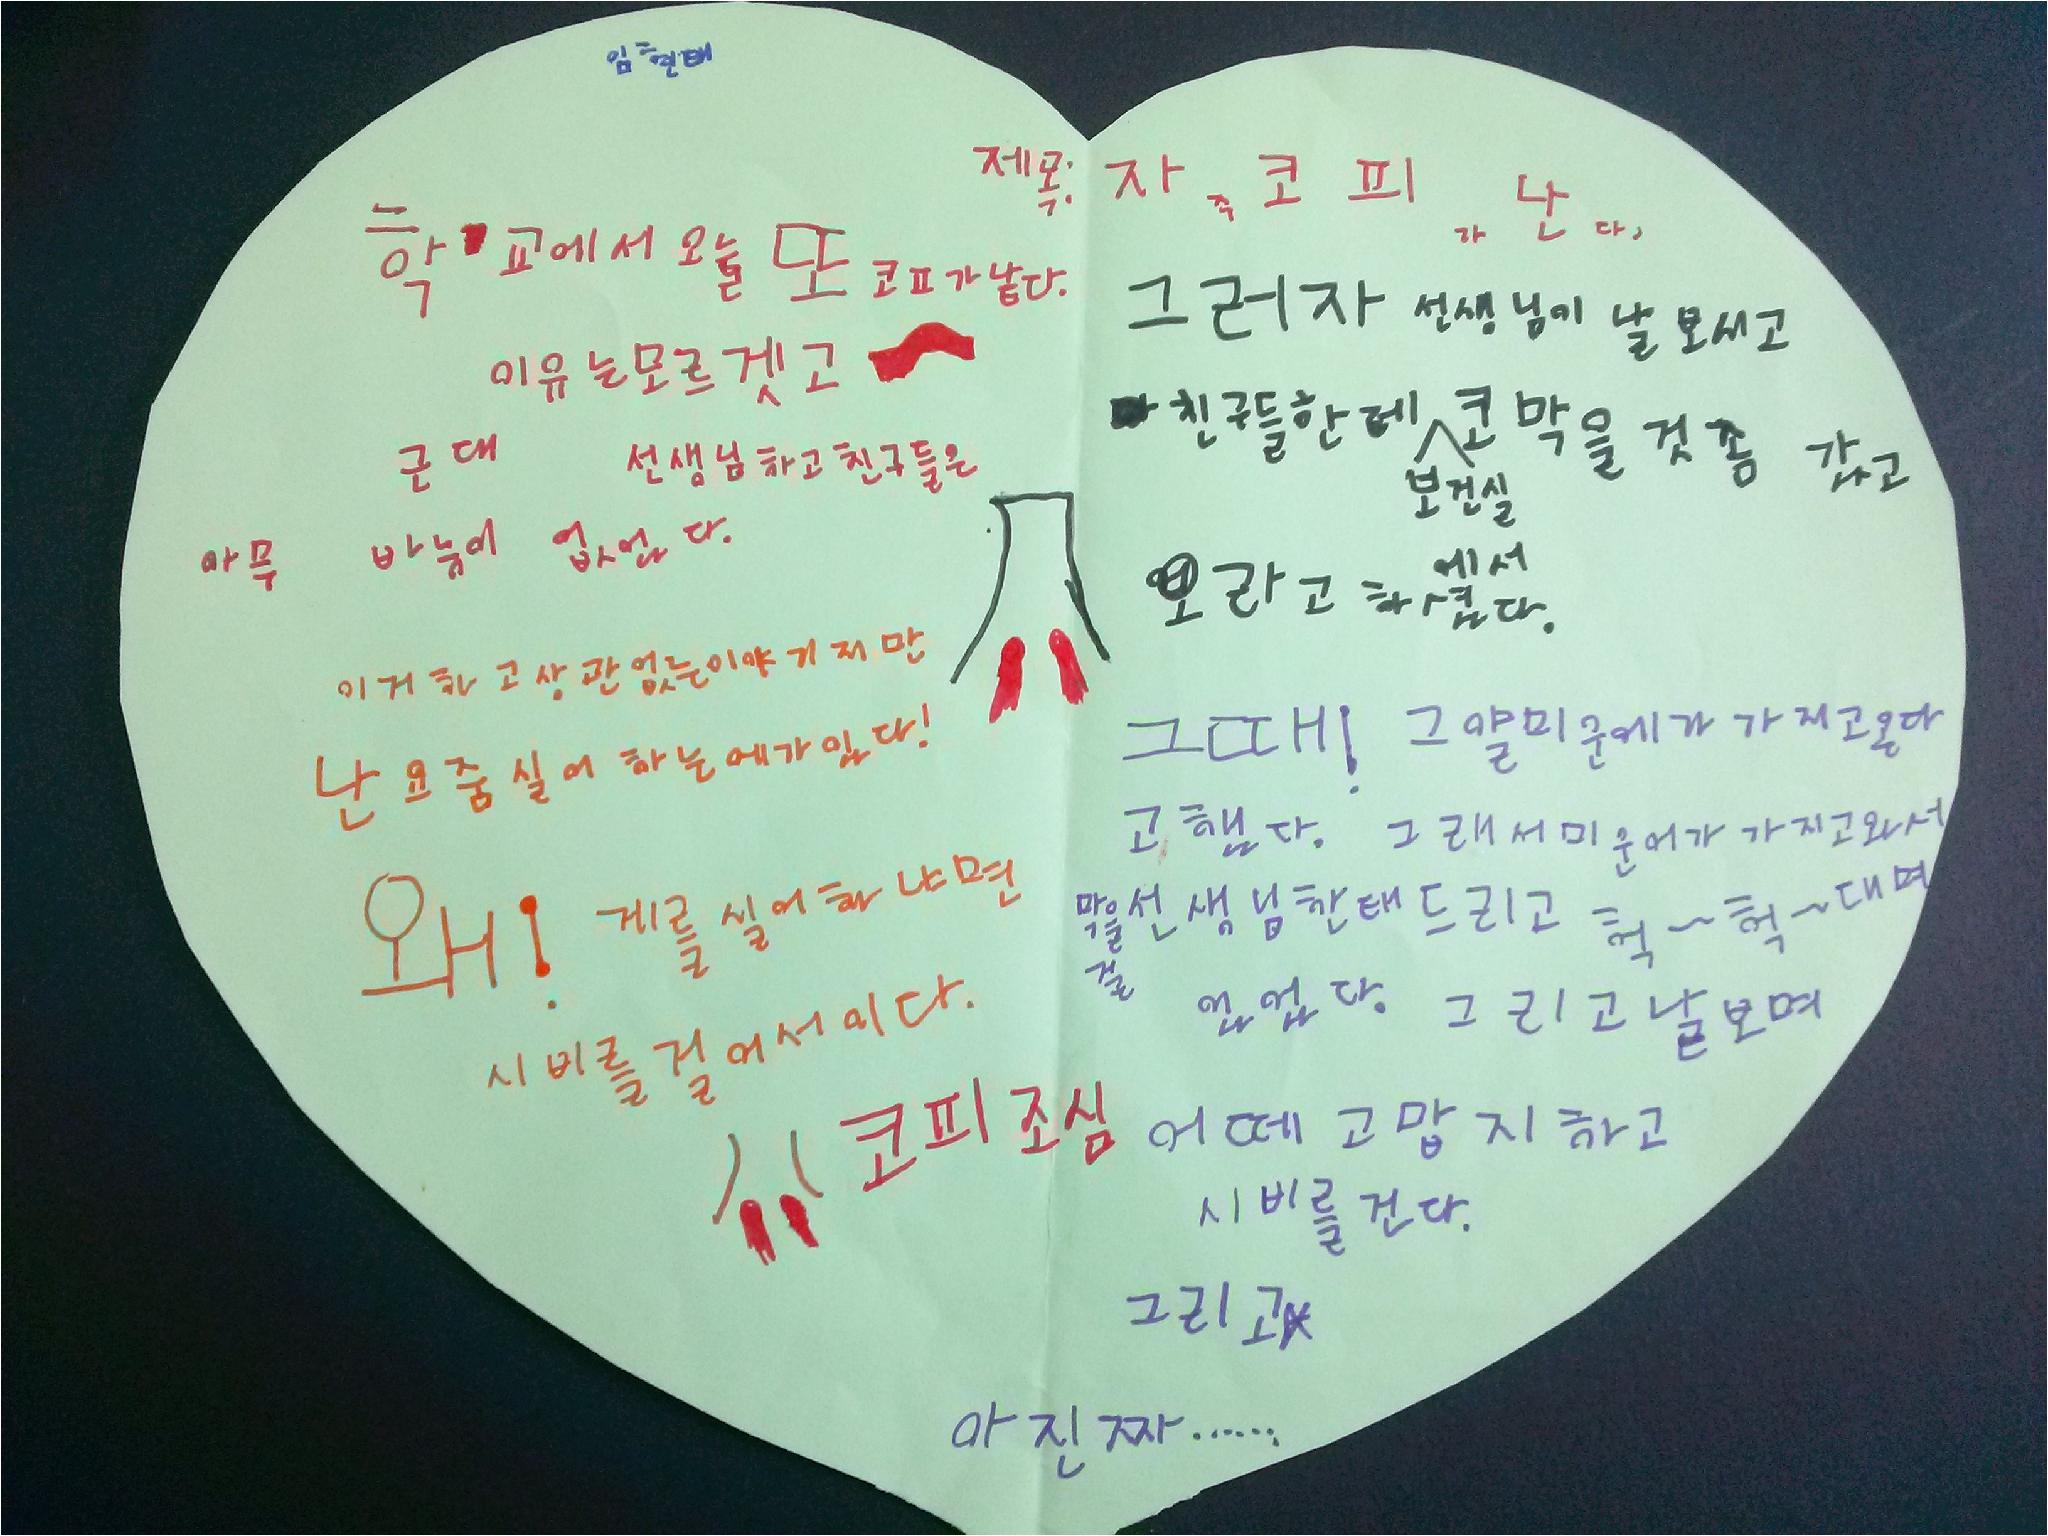 임현태
제목: 자꾸 코피가 난다,
학교에서 오늘 또 코피가 났다.
이유는모르겟고
근대 선생님하고친구들은
아무 바늦이 없었다.
이거하고상관없는이야기지만
난 요줌 실어하는에가있다!
왜! 게를실어하냐면
시비를걸어서이다.
코피조심
그러자 선생님이 날보시고
친구들한테 코막을것좀 갔고
보건실
에서
오라고 하셨다.
그때! 그얄미운에가가지고온다
고했다. 그래서미운에가가지고와서
막을걸 선생님한태드리고 헉~헉~대며
있었다. 그리고날보며
어떼고맙지하고
시비를건다.
그리고
아진짜......